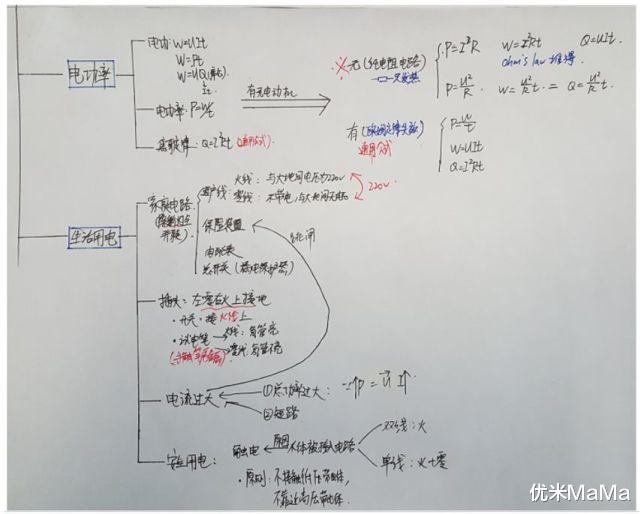 电功率
电功: W=UIt
W=Pt
W=UQ(库仑)
It
电功率: P=W/t
焦耳定律: Q=I²Rt (通用公式)
有无电动机
※无 (纯电阻电路)
P=I²R W=I²Rt Q=UIt
ohm's law 推导
P=U²/R W=U²/R t = Q=U²/R t
有 (欧姆定律失效)
通用公式
P=W/t
W=UIt
Q=I²Rt
生活用电
家庭电路
并联
进户线: 火线: 与大地间电压为220V
零线: 不带电, 与大地间无电压
220V
保险装置
电能表
总开关 (漏电保护器)
跳闸
插头: 左零右火上接地
·开关·接火线上
·试电笔 火线: 氖管亮
零线: 氖管不亮
电流过大
①总功率过大: ∵↑P = U I↑
②短路
安全用电:
触电 原因 人体被接入电路
双线: 火
单线: 火+零
·原则: 不接触低压带电体,
不靠近高压带电体.
优米MaMa